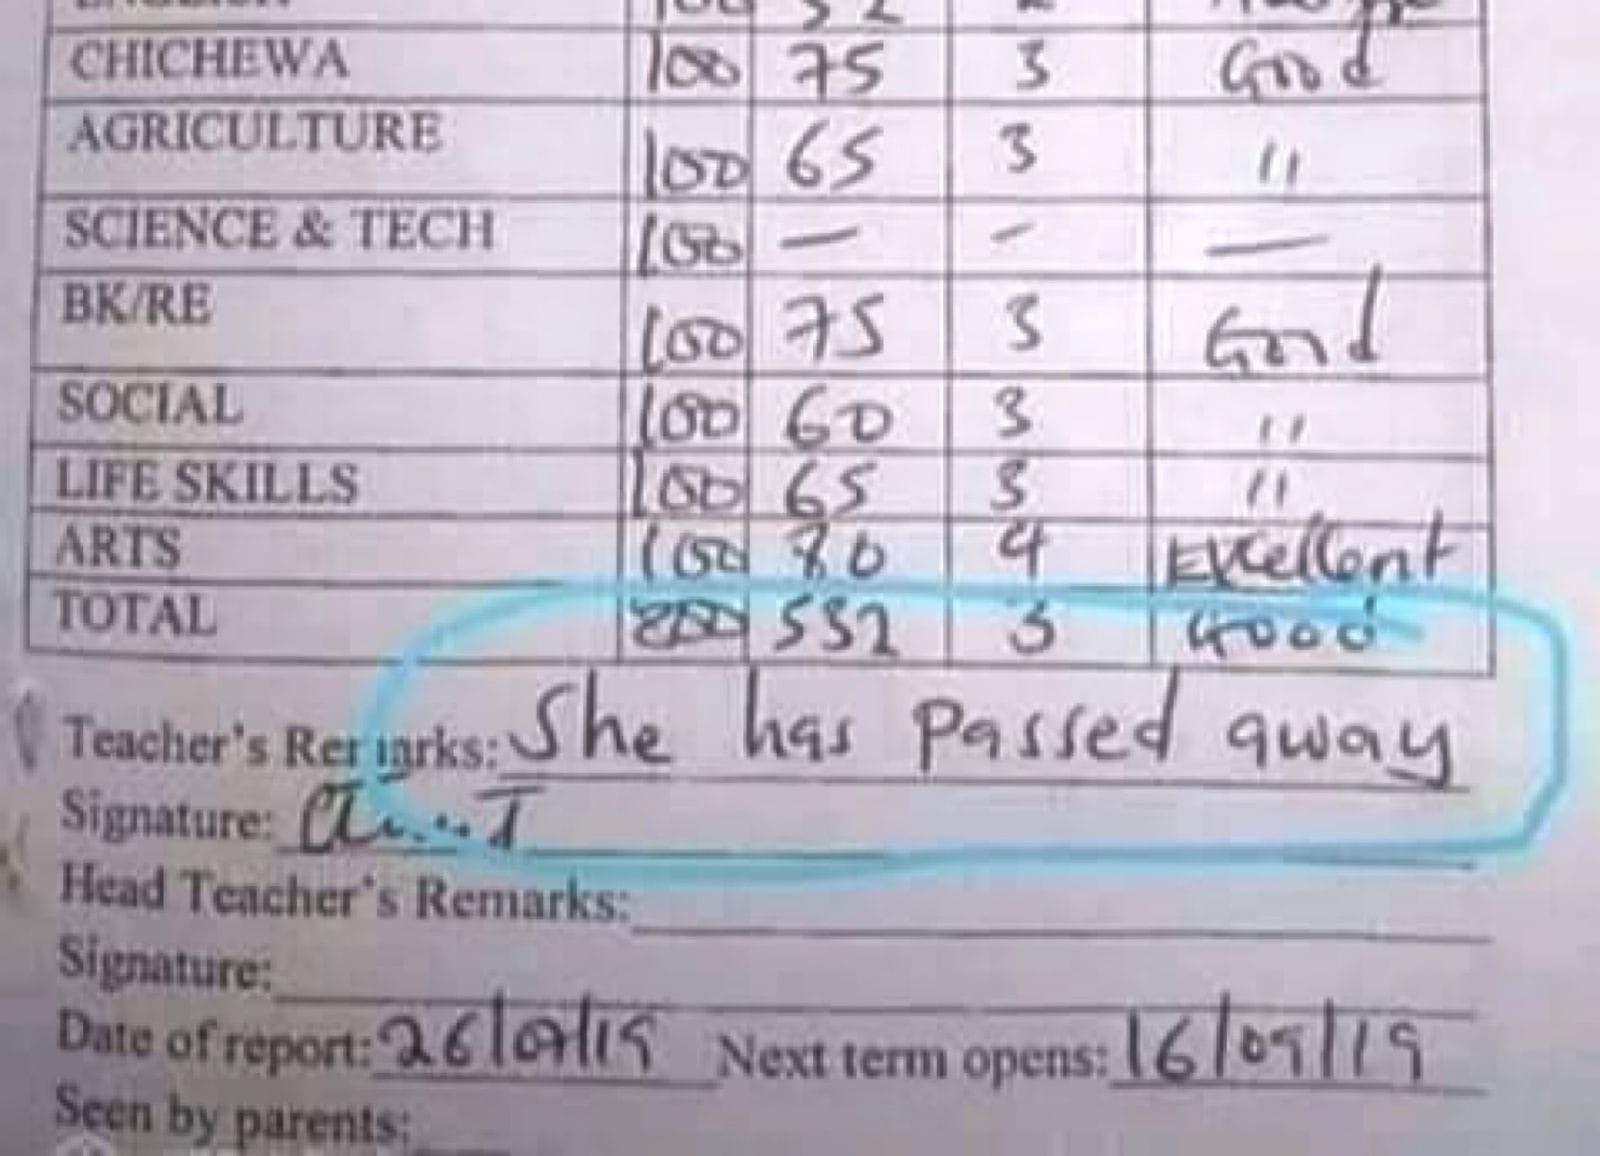 ENGLISH 100 52 2
CHICHEWA 100 75 3 Good
AGRICULTURE 100 65 3 "
SCIENCE & TECH 100 — - —
BK/RE 100 75 3 Good
SOCIAL 100 60 3 "
LIFE SKILLS 100 65 3 "
ARTS 100 80 4 Excellent
TOTAL 800 532 3 Good
Teacher's Remarks: She has passed away
Signature:
Head Teacher's Remarks:
Signature:
Date of report: 26/07/19 Next term opens: 16/09/19
Seen by parents: